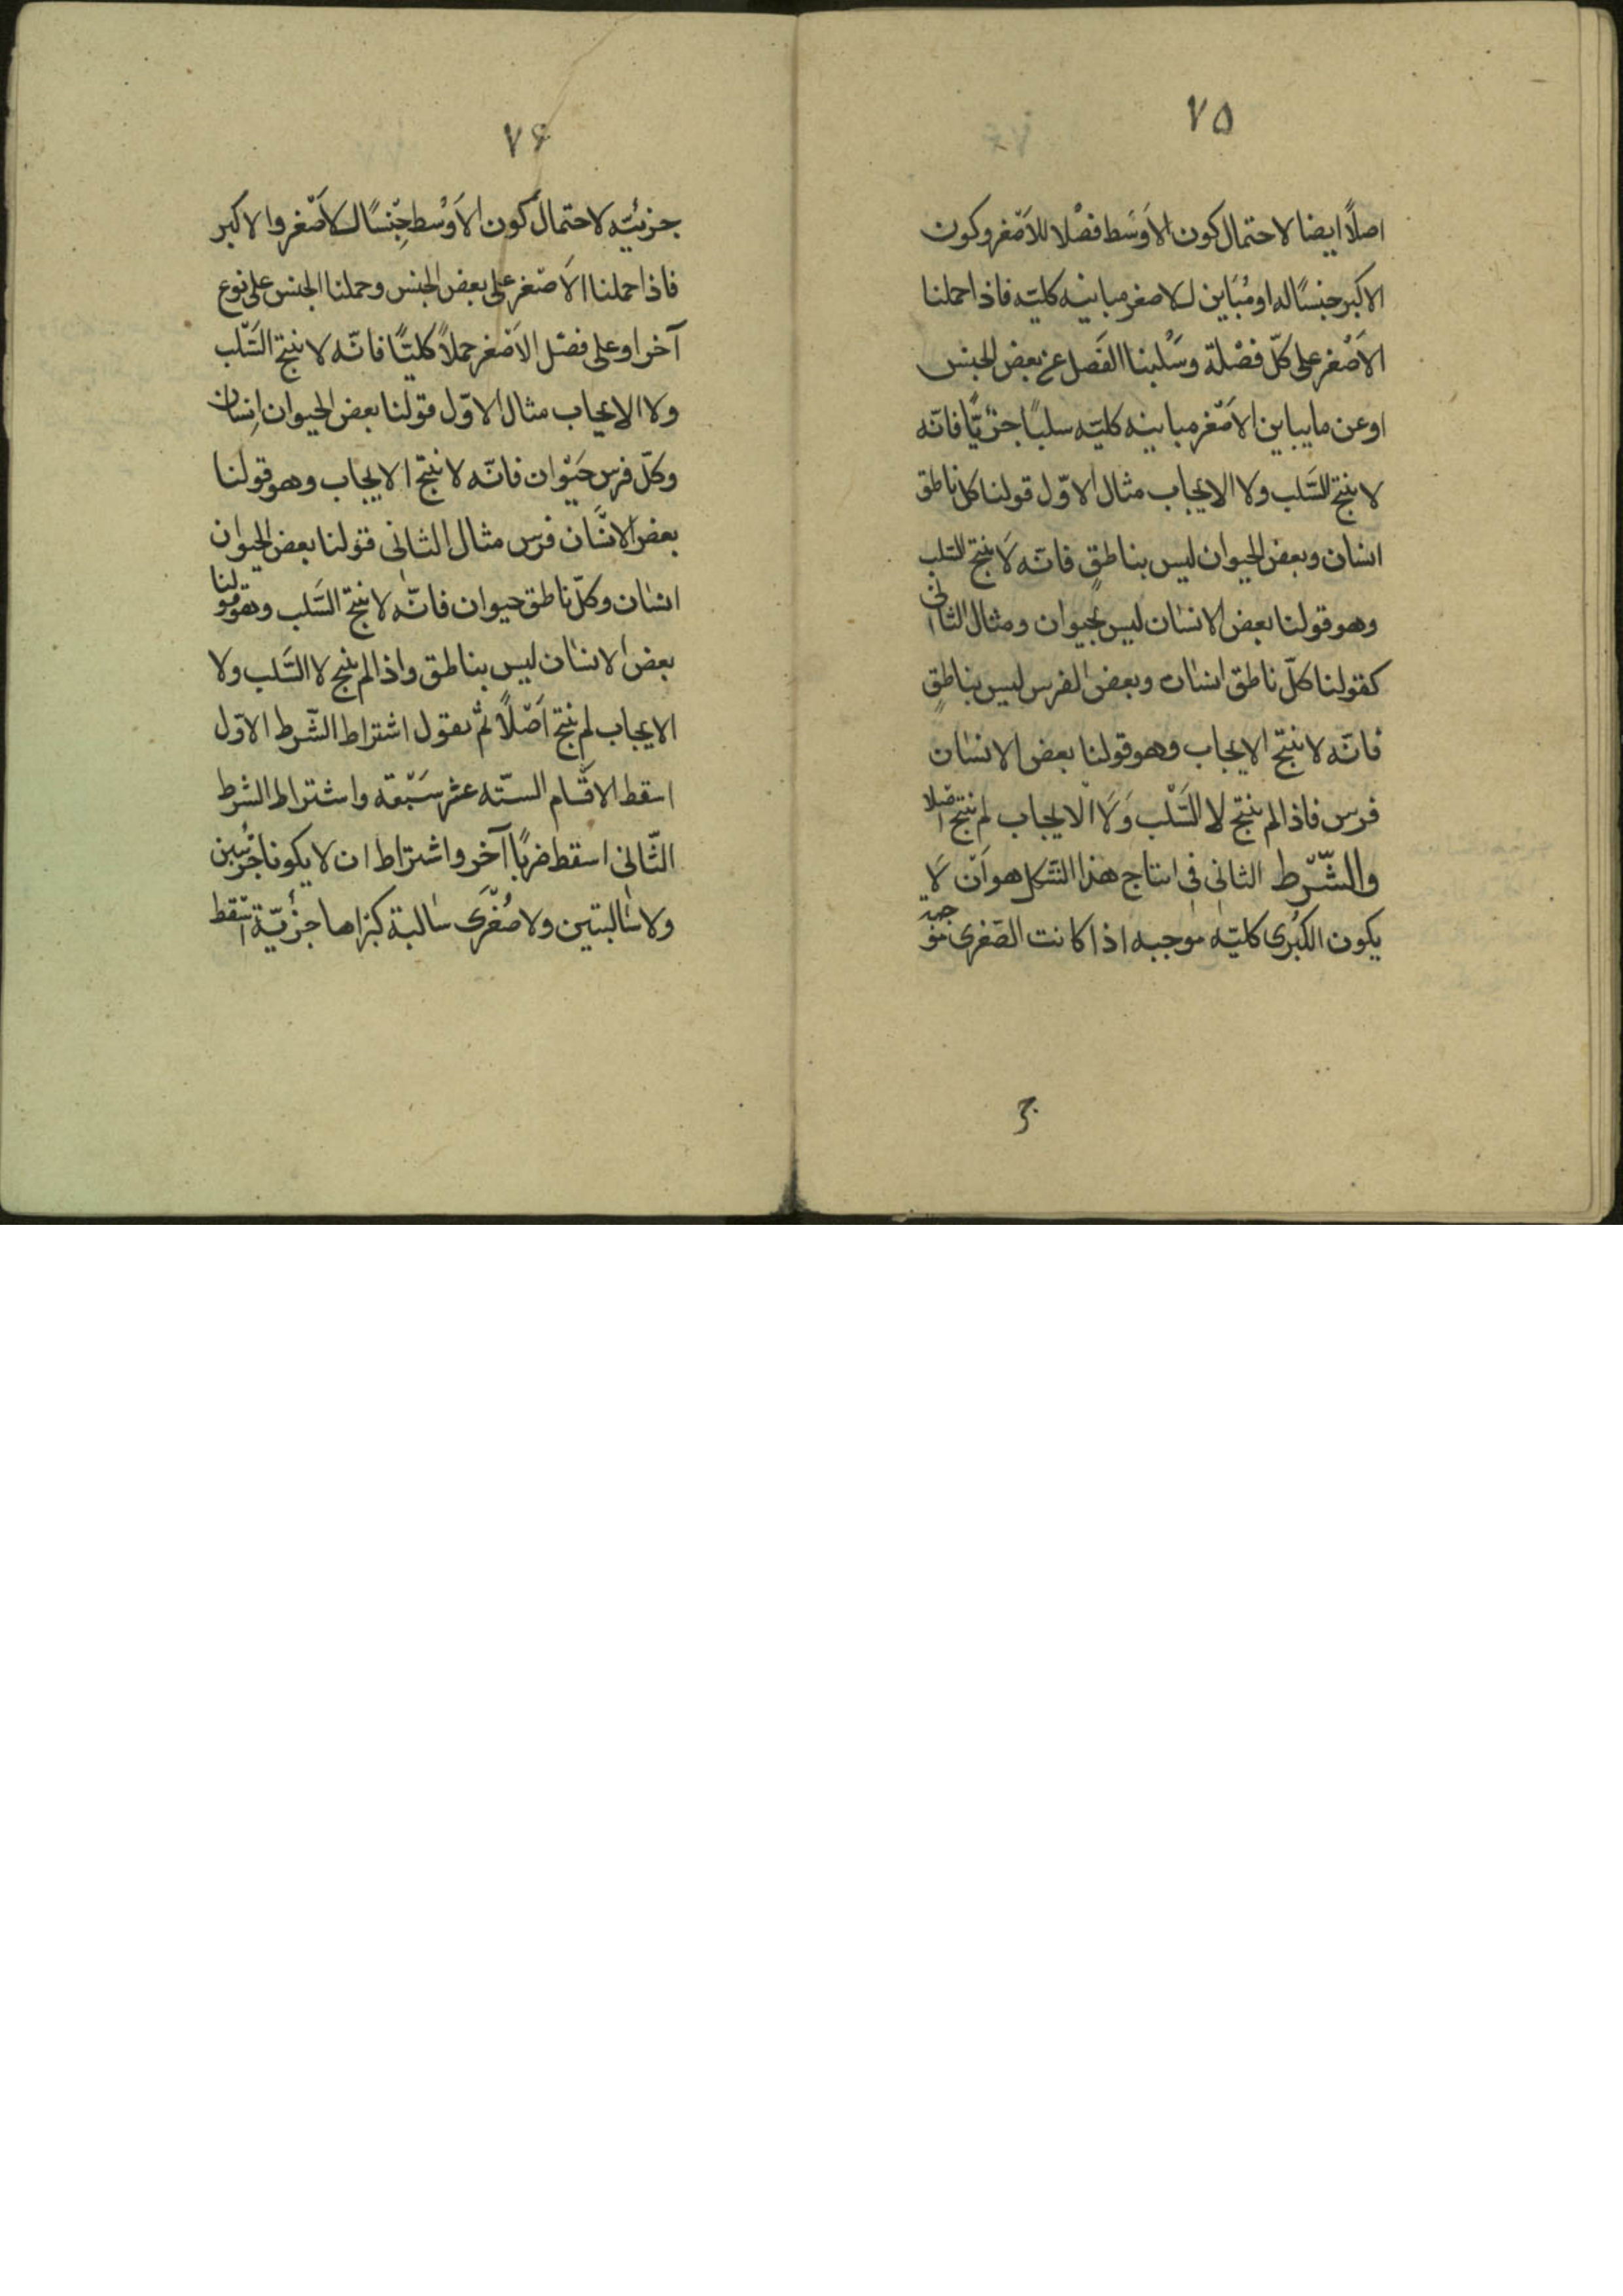 ۷۵
اصلاً ايضا لاحتمال كون الاَوسَط فصْلا للاَصْغر وكون
الاكبر جنسًا له او مُبَاين للاصغر مباينه كليّه فاذا حملنا
الاَصْغر على كلّ فصْلهَ وسَلْبنا الفَصل عن بعض الجنس
او عن ما يباين الاَصْغر مباينه كليّه سلبًا جزئيًّا فانّه
لا ينتج السَّلب ولا الايجاب مثال الاوّل قولنا كل ناطق
انسان وبعض الحيوان ليس بناطقٍ فانّه لَا ينتج السَّلب
وهو قولنا بعض الانسان ليس بحيوان ومثال الثانى
كقولنا كلّ ناطق انسان وبعض الفرس ليس بناطقٍ
فانّه لا ينتج الايجاب وهو قولنا بعض الانسان
فرس فاذا لم ينتج لا السَّلْب وَلَا الايجاب لم ينتج اصْلا
والشّرط الثانى فى انتاج هذا الشَّكل هو اَنْ لَا
يكون الكبْرى كليّه موجبه اذا كانت الصّغرى موجبه
ج
۷۶
جزئيّه لاحتمال كون الاَوْسط جِنْسًا للاَصْغر والاكبر
فاذا حملنا الاَصْغر على بعض الجنس وحملنا الجنس على نوع
آخر او على فصْل الاَصْغر حملاً كليًّا فانّه لا ينتج السَّلب
ولا الايجاب مثال الاوّل قولنا بعض الحيوان اِنسان
وكلّ فرس حَيْوان فانّه لا ينتج الايجاب وهو قولنا
بعض الانسَان فرس مثال الثانى قولنا بعض الحيوان
انسان وكلّ ناطق حيوان فانّه لا ينتج السَّلب وهو قولنا
بعض الانسان ليس بناطق واذا لم ينتج لا السَّلب ولا
الايجاب لم ينتج اَصْلاً ثمّ نقول اشتراط الشّرط الاوّل
اسقط الاقسَام الستّه عشر سَبْعَة واشتراط الشرط
الثّانى اسقط ضربًا آخر واشتراط ان لا يكونا جزئيين
ولا سالبتين ولا صُغْرَى سَالبة كبراها جزئيّة اسْقط